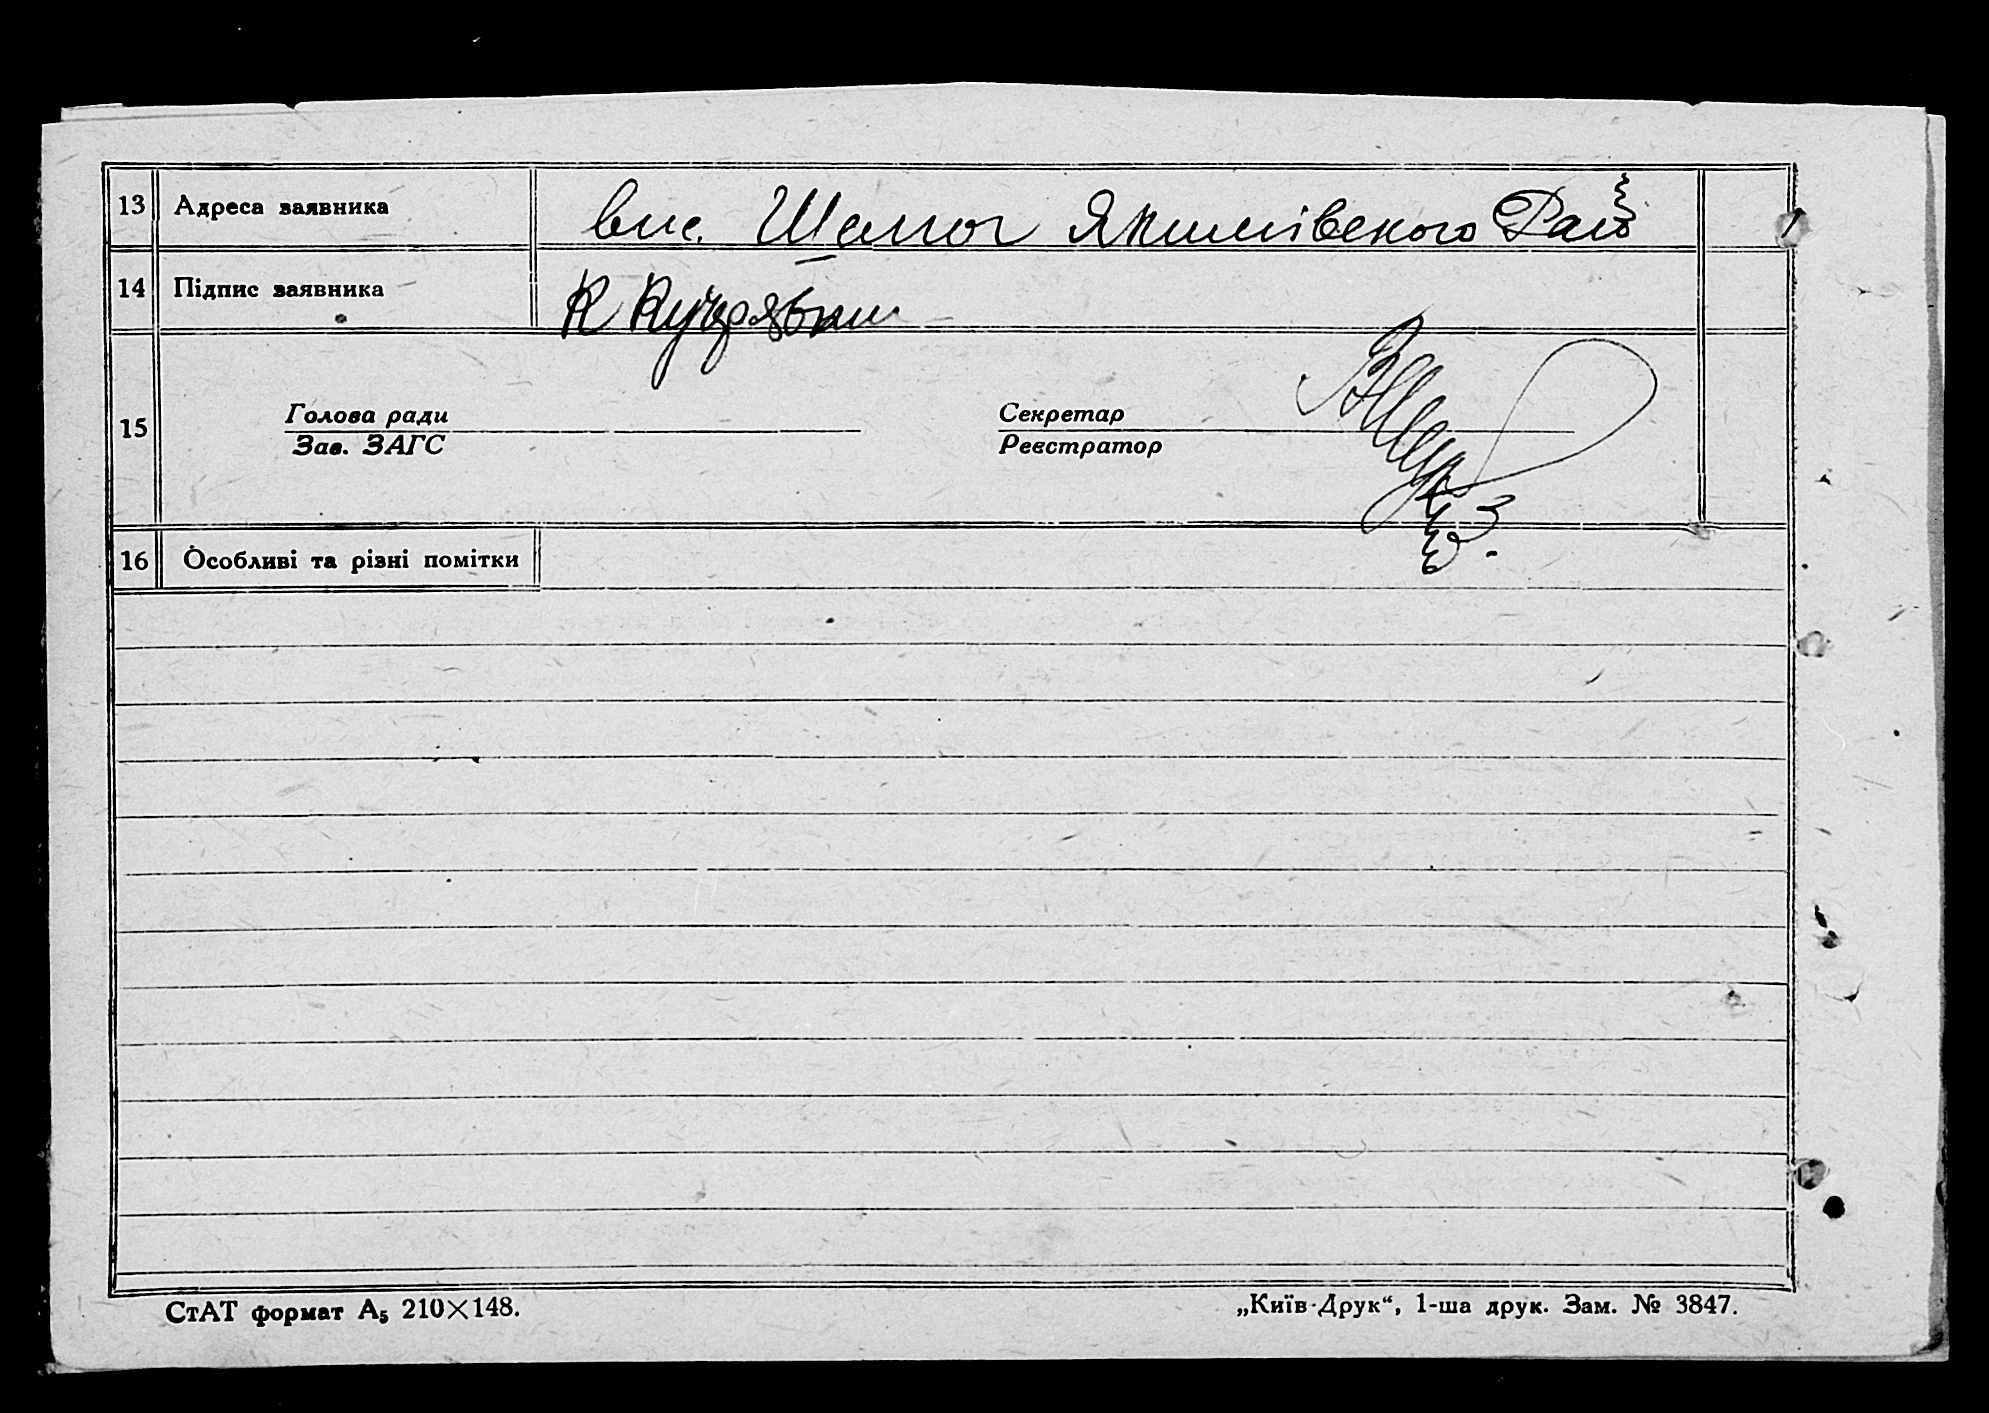 13 Адреса заявника вис. Якимівського Рай
14 Підпис заявника К
15 Голова ради Секретар
Зав. ЗАГС Реєстратор
16 Особливі та різні помітки
СтАТ формат А₅ 210×148. „Київ-Друк“, 1-ша друк. Зам. № 3847.